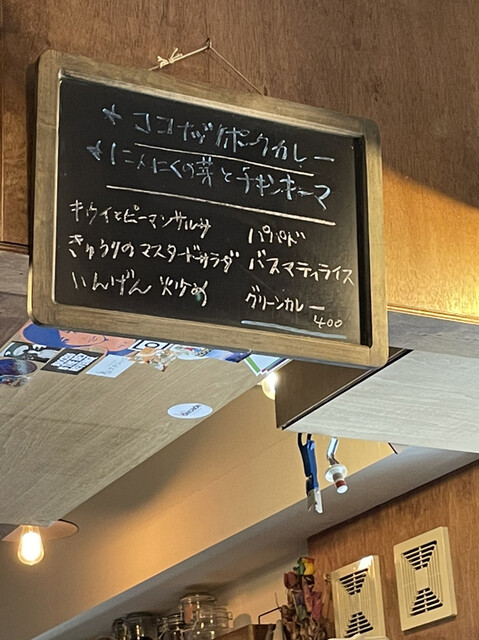 * ココナッツポークカレー
* にんにくの芽とチキンキーマ
キウイとピーマンサルサ
きゅうりのマスタードサラダ
いんげん 炒め
パパド
バスマティライス
グリーンカレー
400